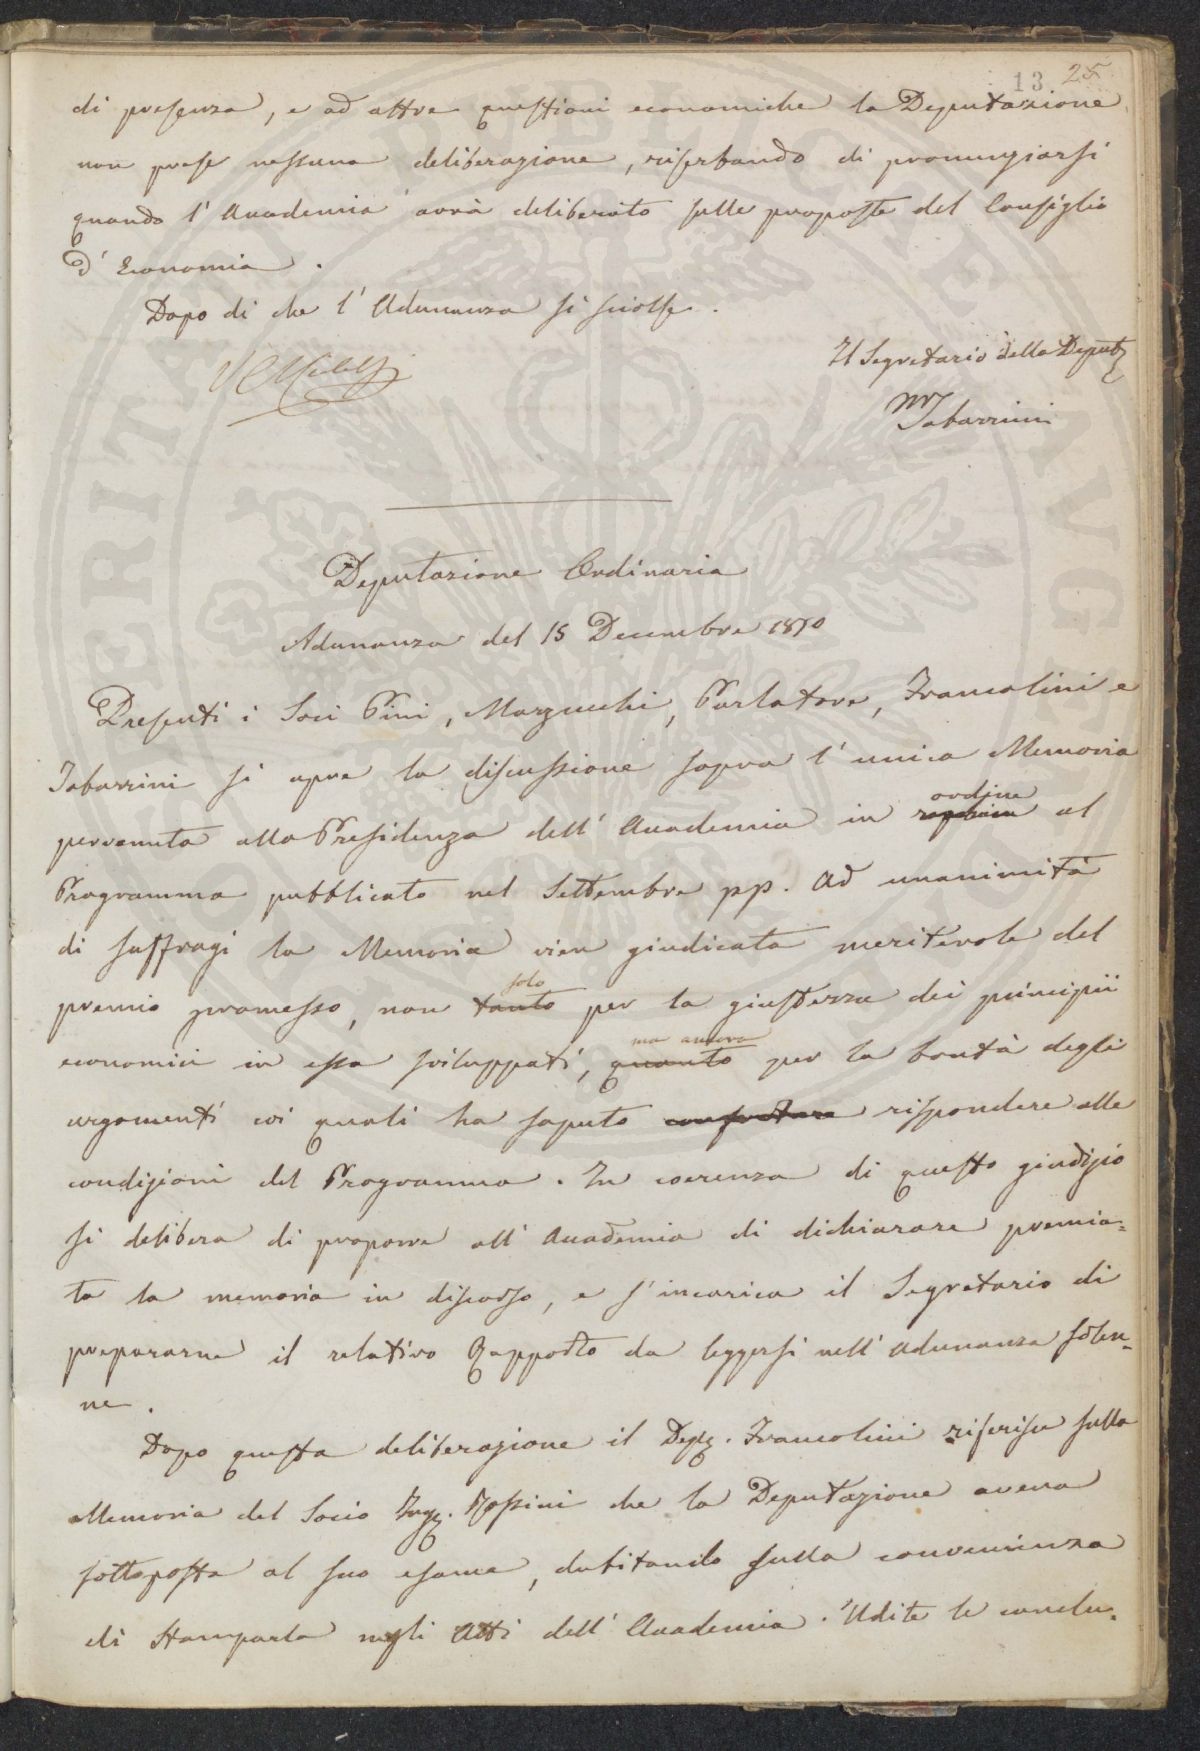 13 25
di presenza, e ad altre questioni economiche la Deputazione
non prese nessuna deliberazione, riserbando di pronunziarsi
quando l'Accademia avrà deliberato sulle proposte del Consiglio
d'Economia.
Dopo di che l'Adunanza si sciolse.
Il Segretario della Deputaz
M Tabarrini
Deputazione Ordinaria
Adunanza del 15 Decembre 1870
Presenti i Soci Pini, Marzucchi, Parlatore, Francolini e
Tabarrini si apre la discussione sopra l'unica Memoria
pervenuta alla Presidenza dell'Accademia in ordine al
Programma pubblicato nel Settembre pp. Ad unanimità
di suffragi la Memoria vien giudicata meritevole del
premio promesso, non tanto solo per la giustezza dei principii
economici in essa sviluppati, quanto ma ancora per la bontà degli
argomenti coi quali ha saputo confortare rispondere alle
condizioni del Programma. In coerenza di questo giudizio
si delibera di proporre all'Accademia di dichiarare premia=
ta la memoria in discorso, e s'incarica il Segretario di
prepararne il relativo Rapporto da leggersi nell'Adunanza solen=
ne.
Dopo questa deliberazione il Dep. Francolini riferisce sulla
Memoria del Socio Ing. Rossini che la Deputazione aveva
sottoposta al suo esame, dubitando sulla convenienza
di Stamparla negli Atti dell'Accademia. Udite le conclu=